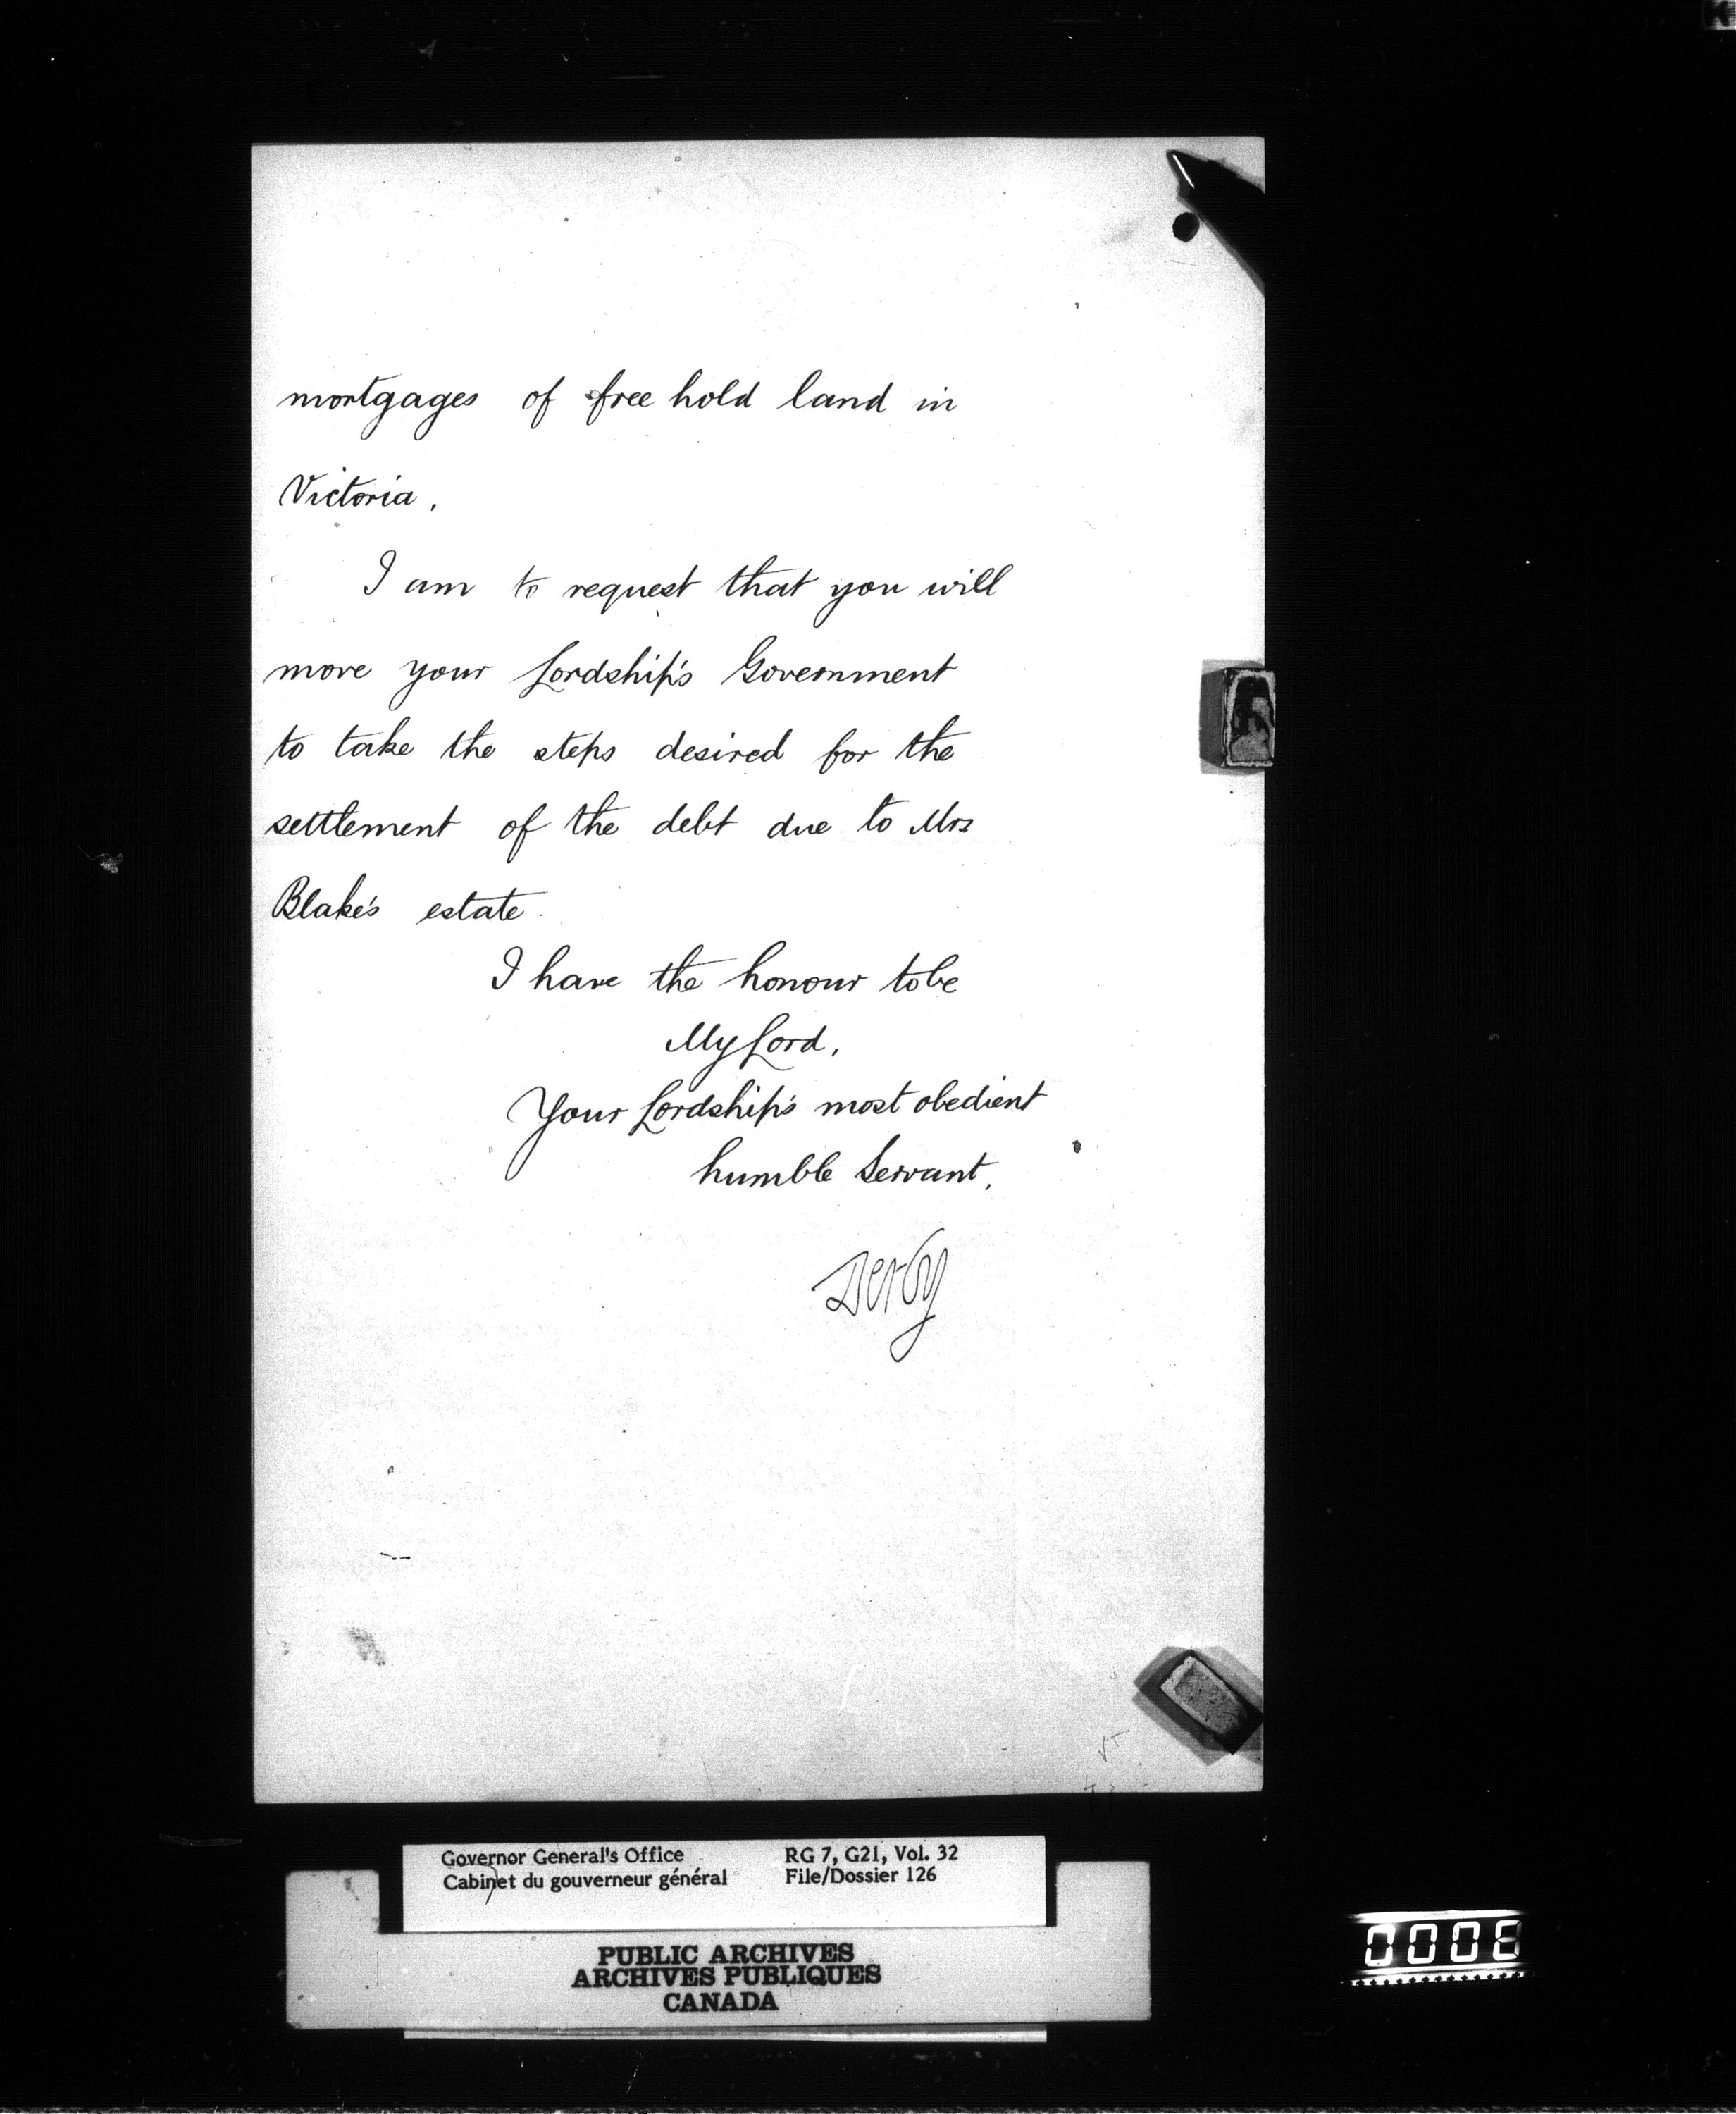 mortgages of free hold land in
Victoria.
I am to request that you will
move your Lordship's Government
to take the steps desired for the
settlement of the debt due to Mrs
Blake's estate.
I have the honour to be
My Lord,
Your Lordship's most obedient
humble Servant,
Derby
Governor General's Office RG 7, G21, Vol. 32
Cabinet du gouverneur général File/Dossier 126
PUBLIC ARCHIVES
ARCHIVES PUBLIQUES
CANADA